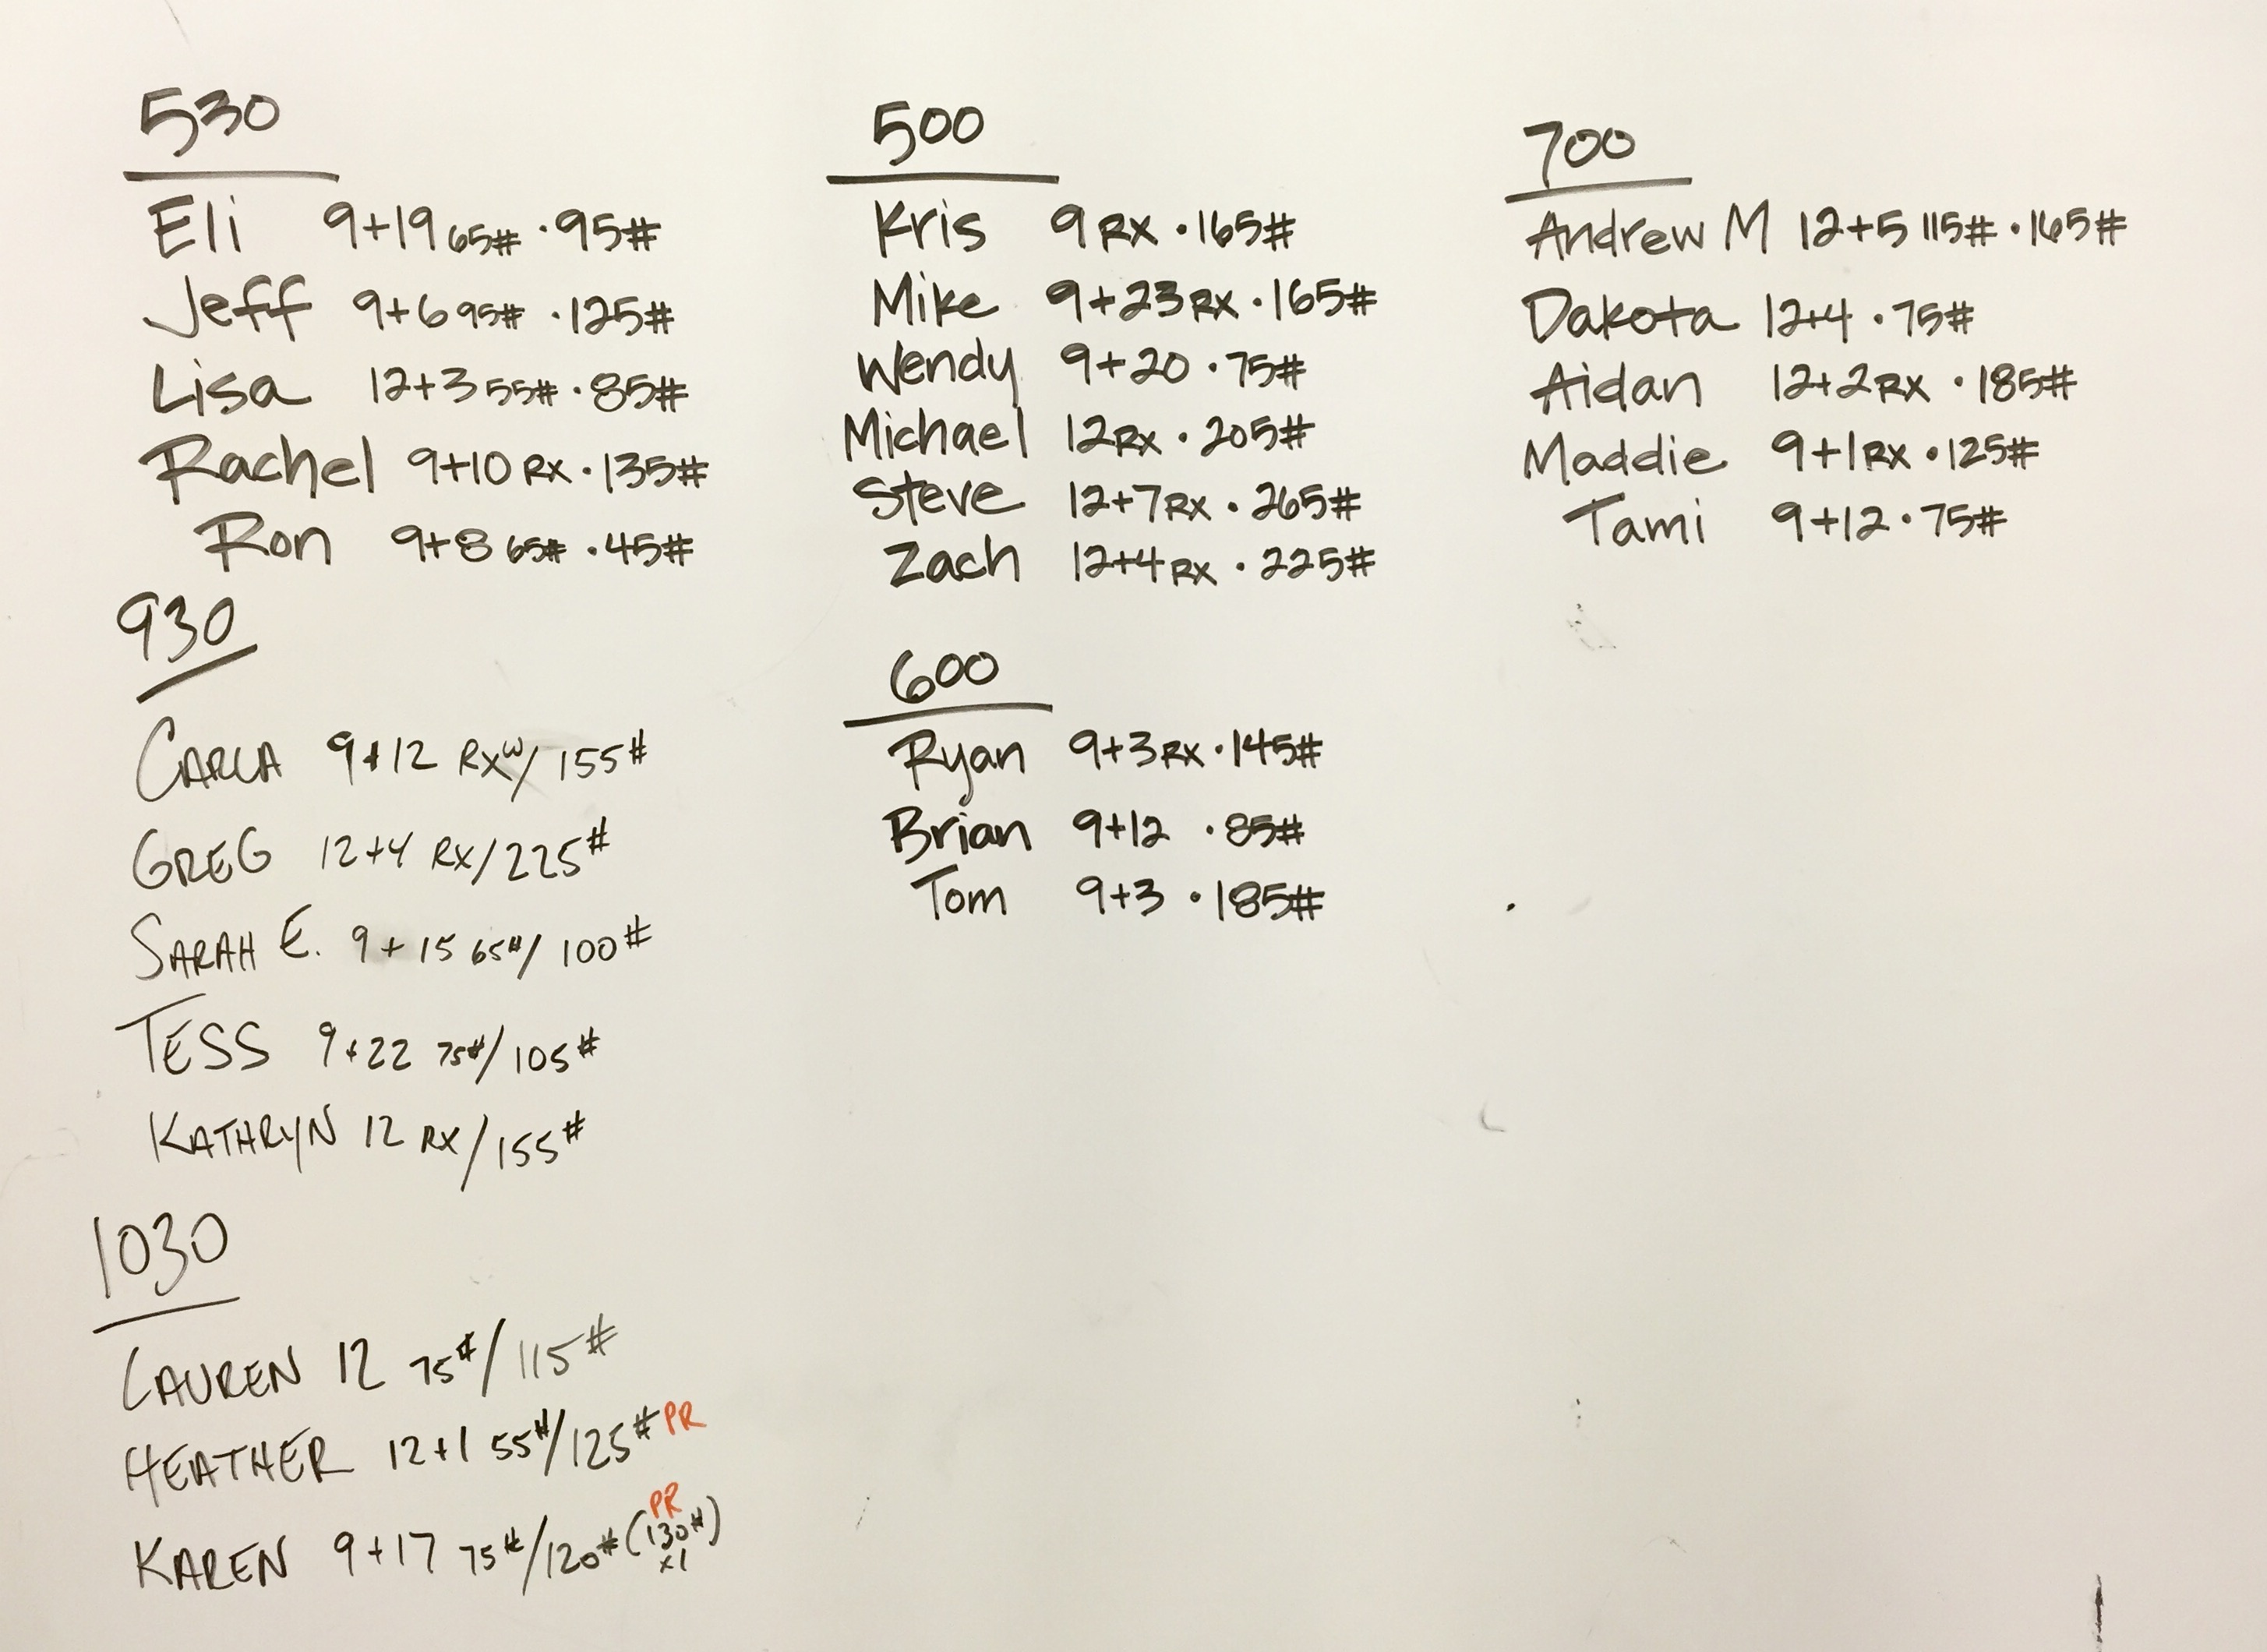 530
Eli 9+19 65# · 95#
Jeff 9+6 95# · 125#
Lisa 12+3 55# · 85#
Rachel 9+10 RX · 135#
Ron 9+8 65# · 45#
930
CARLA 9+12 RXW/ 155#
GREG 12+4 RX/225#
SARAH E. 9+15 65#/ 100#
TESS 9+22 75#/105#
KATHRYN 12 RX/155#
1030
LAUREN 12 75#/115#
HEATHER 12+1 55#/125# PR
KAREN 9+17 75#/120# (130# x1) PR
500
Kris 9 RX · 165#
Mike 9+23 RX · 165#
Wendy 9+20 · 75#
Michael 12 RX · 205#
Steve 12+7 RX · 265#
Zach 12+4 RX · 225#
600
Ryan 9+3 RX · 145#
Brian 9+12 · 85#
Tom 9+3 · 185#
700
Andrew M 12+5 115# · 165#
Dakota 12+4 · 75#
Aidan 12+2 RX · 185#
Maddie 9+1 RX · 125#
Tami 9+12 · 75#